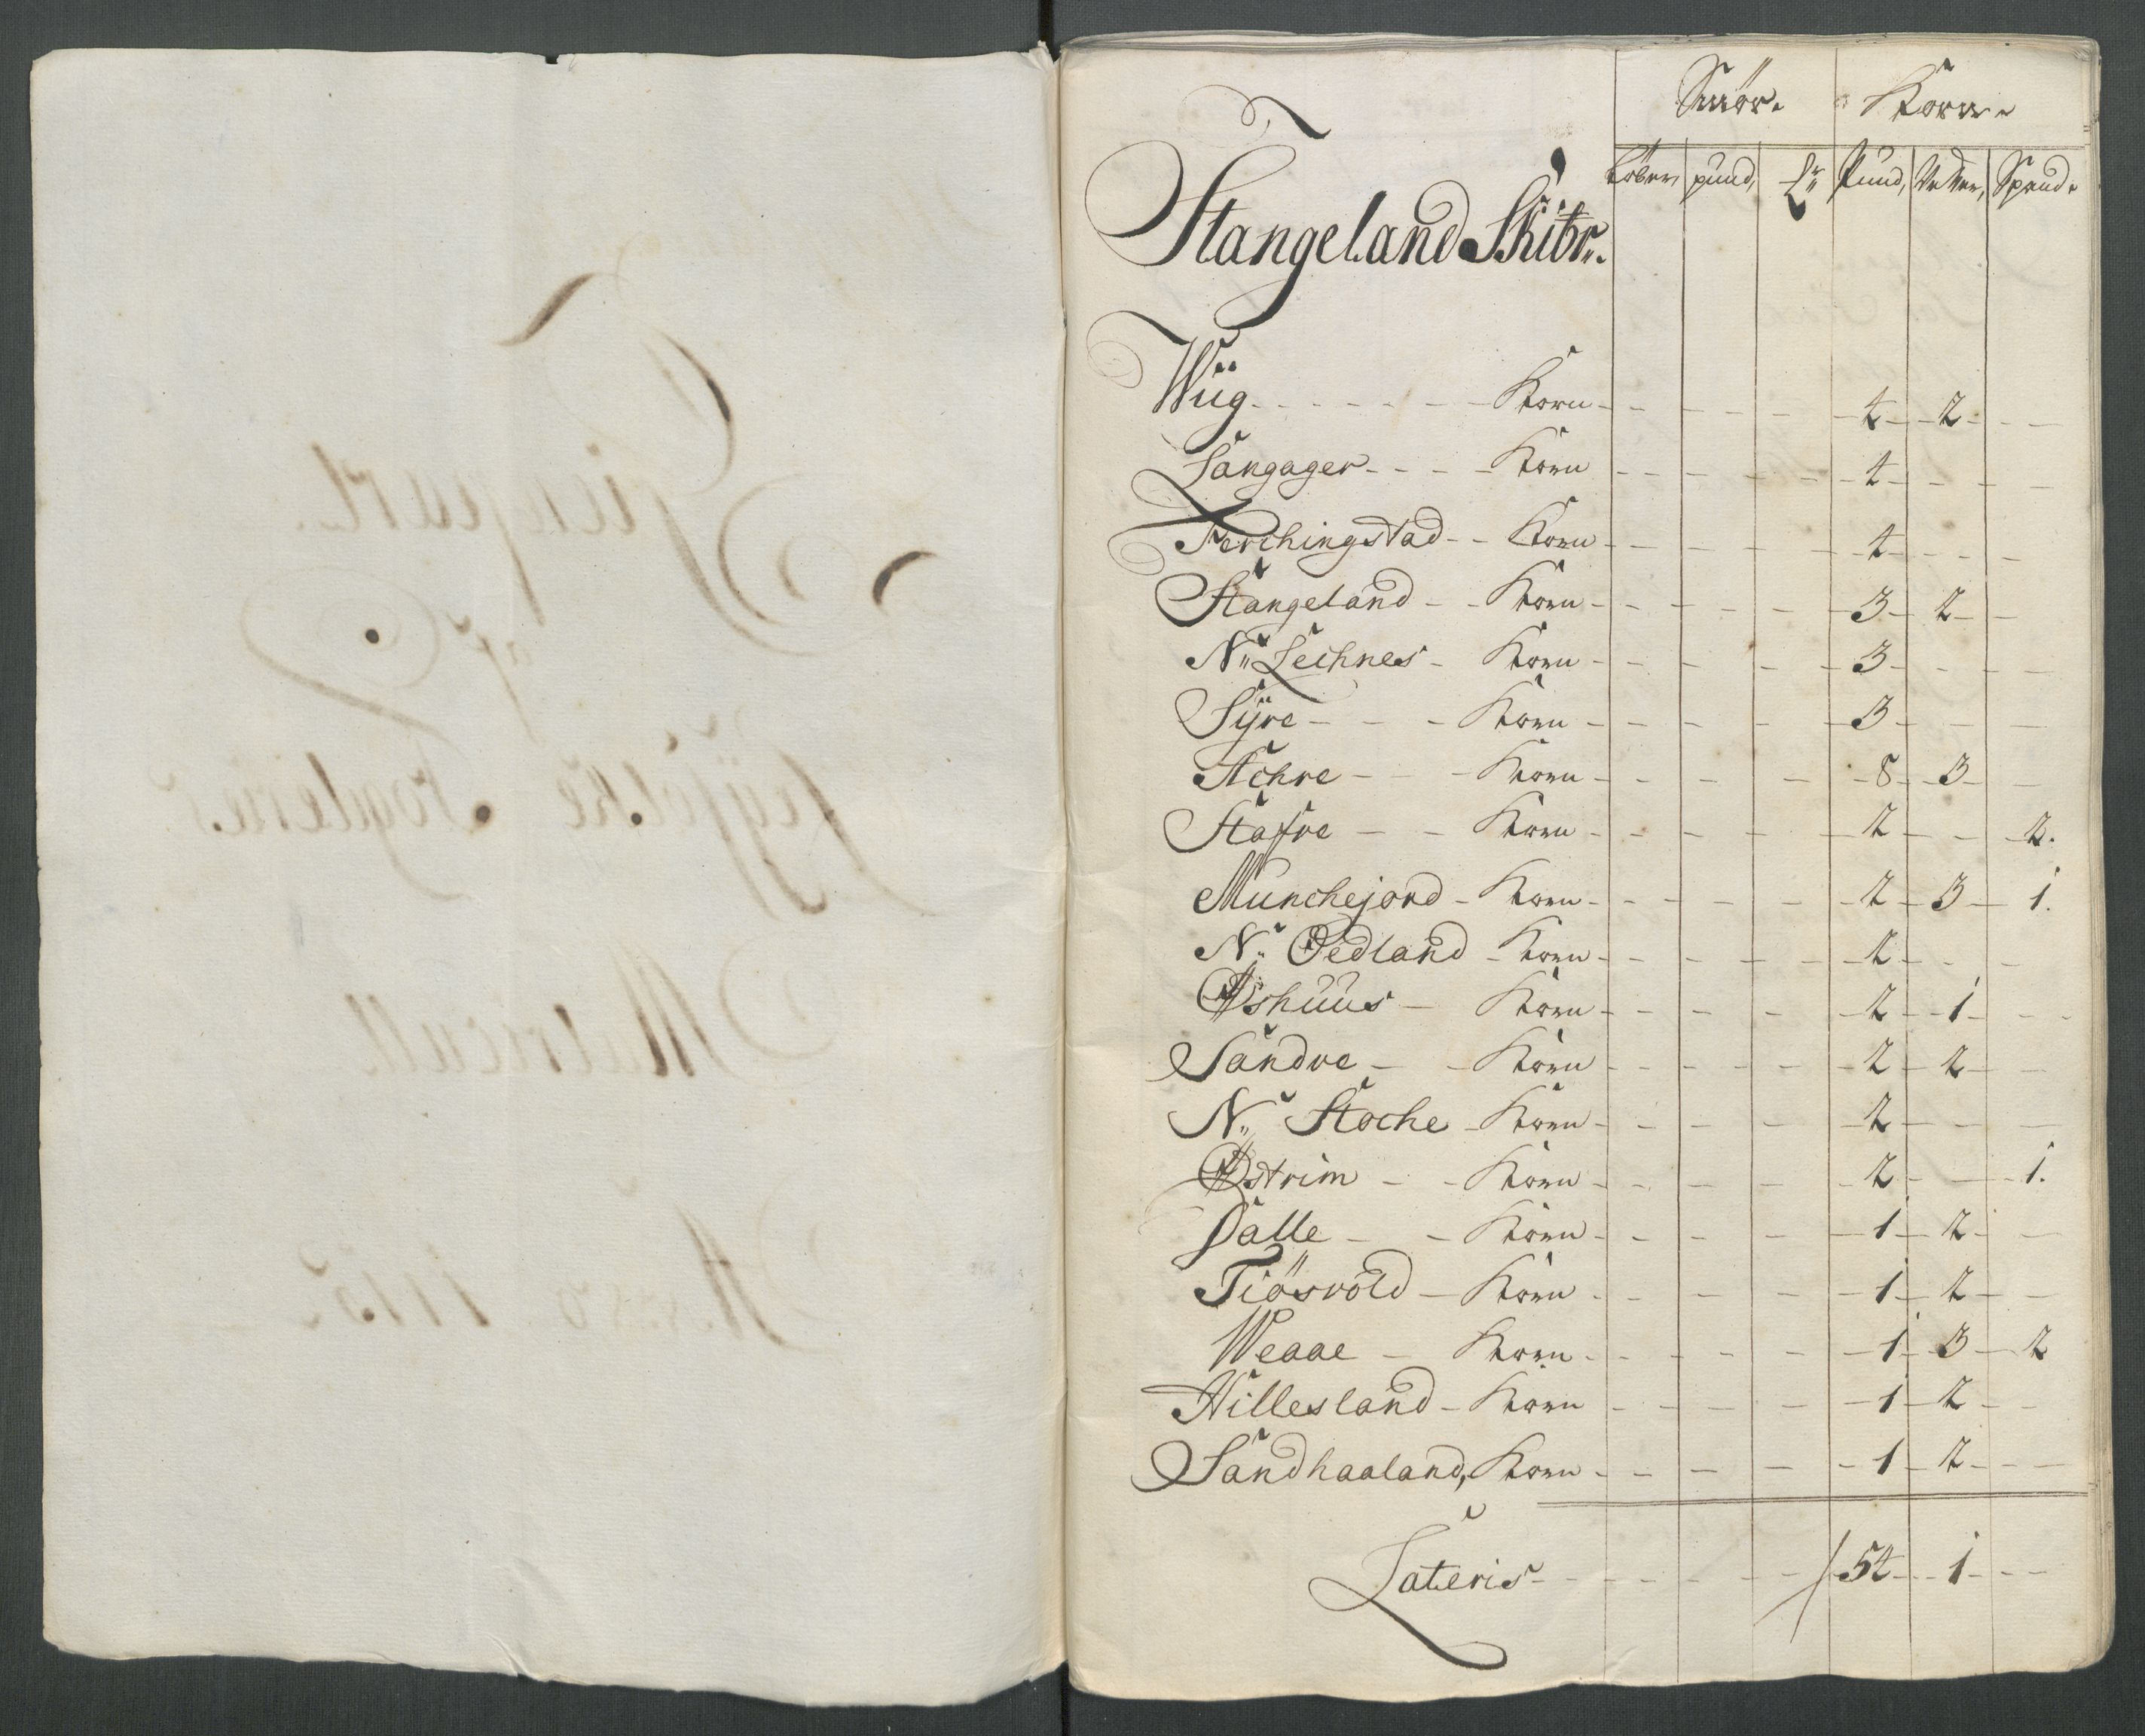 Smör. Korn.
Løber, pund, Pund, Vetter, Spand.
Stangeland Skibr.
Wiig - - - Korn - - - 4 - 2 - -
Sangager - - - Korn - - - 4 - - -
Ferchingstad - - Korn - - - 4 - - -
Stangeland - - Korn - - - 3 - 2 - -
N: Lechnes - Korn - - - 3 - - -
Syre - - - Korn - - - 3 - - -
Achre - - - Korn - - - 8 - 3 - -
Stafre - - Korn - - - 2 - - - 2.
Munchejord - Korn - - - 2 - 3 - 1.
N: Øedland - Korn - - - 2 - - -
Øshuus - Korn - - - 2 - 1 - -
Sandve - - Korn - - - 2 - 2 - -
N: Stoche - Korn - - - 2 - - -
Østrim - - Korn - - - 2 - - - 1.
Dalle - - Korn - - - 1 - 2 - -
Tiøsvold - Korn - - - 1 - 2 - -
Weaae - Korn - - - 1 - 3 - 2
Hillesland - Korn - - - 1 - 2 - -
Sandhaaland, Korn - - - 1 - 2 - -
Lateris - - - 54 - 1 - -